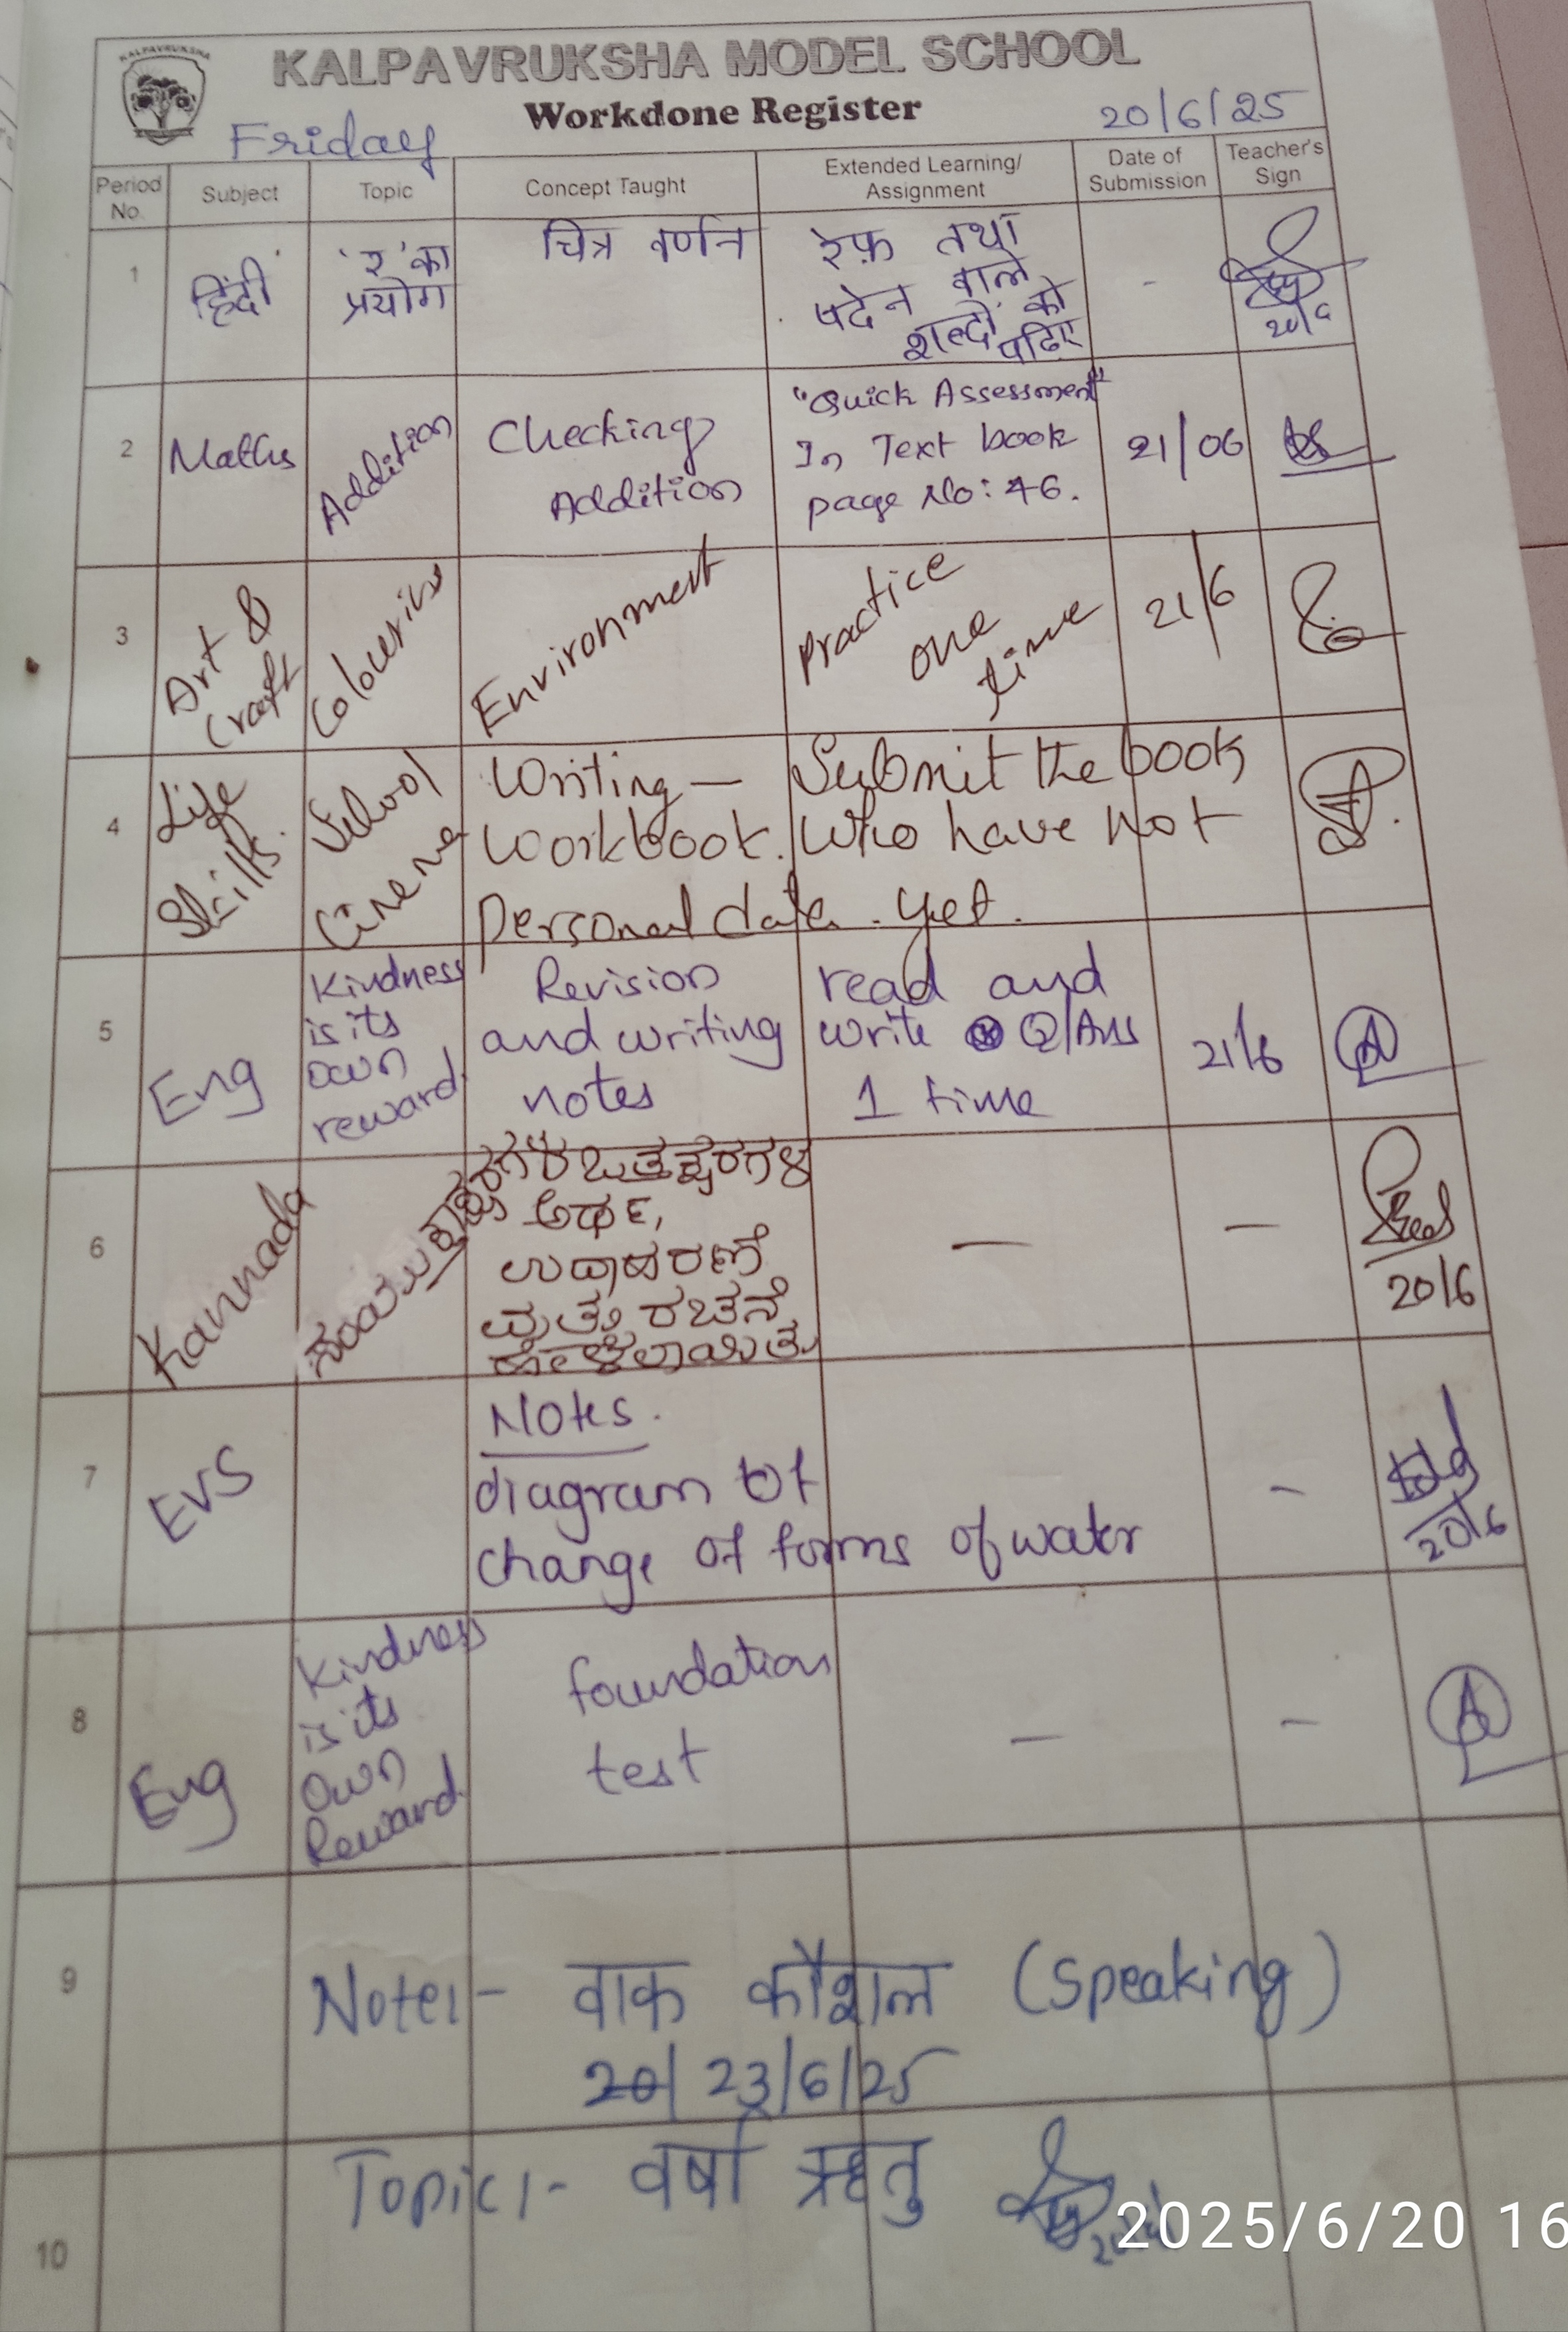 KALPAVRUKSHA
KALPAVRUKSHA MODEL SCHOOL
Workdone Register
Friday
20/6/25
Period No.
Subject
Topic
Concept Taught
Extended Learning/ Assignment
Date of Submission
Teacher's Sign
1
हिंदी
'र' का
प्रयोग
चित्र वर्णन
रेफ़ तथा
पदेन वाले
शब्दों को
पढिए
-
20/6
2
Maths
Addition
Checking
Addition
"Quick Assessment"
In Text book
page No: 46.
21/06
3
Art &
Craft
Colouring
Environment
Practice
one
time
21/6
4
Life
Skills.
School
Cinema
Writing —
Workbook.
Personal data.
Submit the book
who have not
yet.
5
Eng
Kindness
is its
own
reward
Revision
and writing
notes
read and
write Q/Ans
1 time
21/6
6
Kannada
ಅರ್ಥ,
ಉದಾಹರಣೆ
ಮತ್ತು ರಚನೆ
—
—
20/6
7
EVS
Notes.
diagram of
change of forms of water
-
20/6
8
Eng
Kindness
is its
own
Reward
foundation
test
—
—
9
Note:- वाक कौशल (Speaking)
20/ 23/6/25
10
Topic:- वर्षा ऋतु
2025/6/20 16